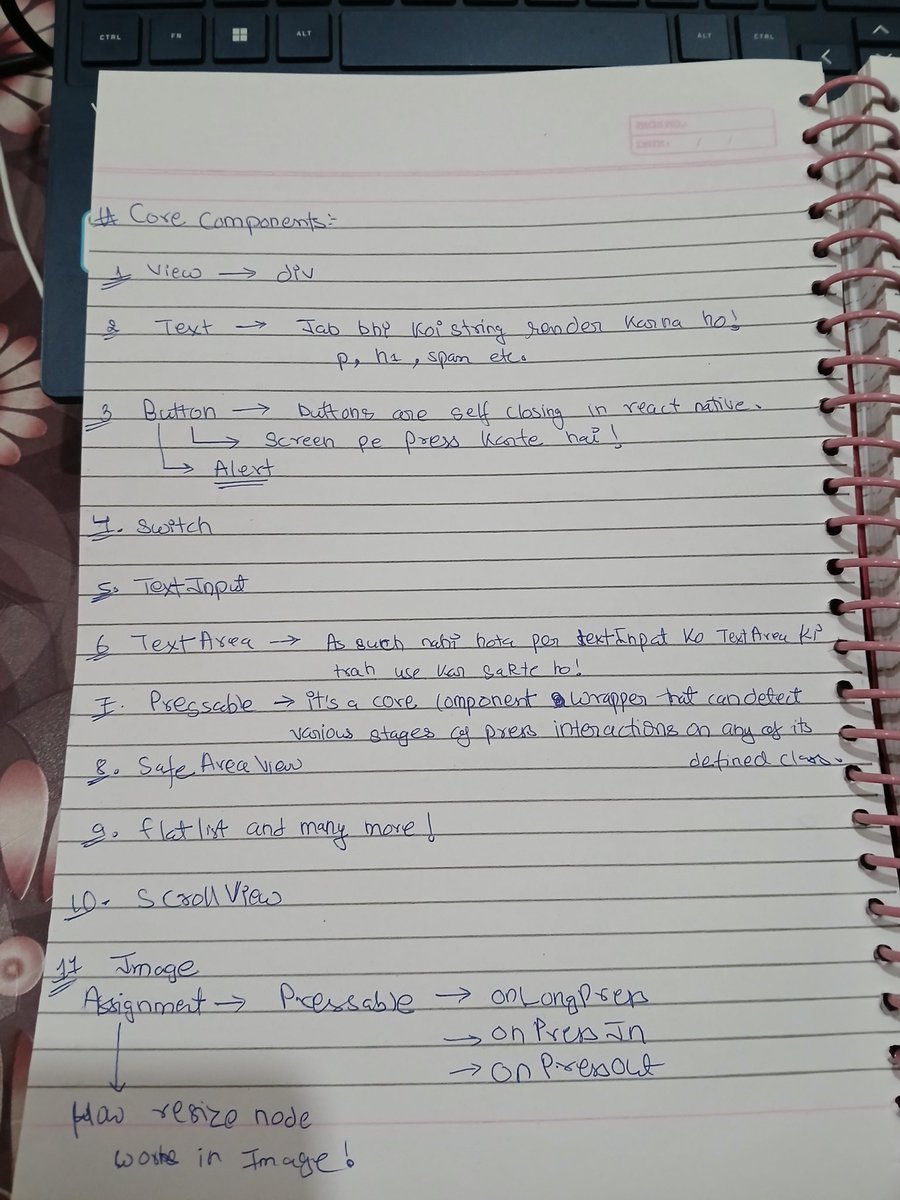 CTRL FN ALT ALT CTRL
DATE: / /
# Core Components:-
1 View → div
2 Text → Jab bhi koi string render karna ho!
p, h1, span etc.
3 Button → buttons are self closing in react native.
→ Screen pe press karte hai!
→ Alert
4. Switch
5. TextInput
6 TextArea → As such nahi hota per textInput ko TextArea ki
trah use kar sakte ho!
7. Pressable → it's a core component wrapper that can detect
various stages of press interactions on any of its
defined class.
8. Safe Area View
9. flatlist and many more!
10. ScrollView
11 Image
Assignment → Pressable → onLongPress
→ onPressIn
→ onPressOut
How resize node
works in Image!